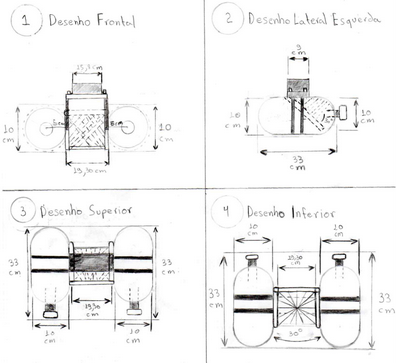 1 Desenho Frontal
15,3 cm
10 cm
10 cm
15,30 cm
2 Desenho Lateral Esquerda
9 cm
10 cm
10 cm
33 cm
3 Desenho Superior
33 cm
33 cm
15,30 cm
10 cm
10 cm
4 Desenho Inferior
10 cm
10 cm
15,30 cm
33 cm
33 cm
30°